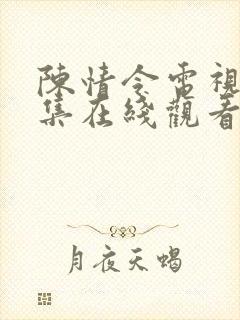 陳情令電視
集在綫觀看
月夜天蝎